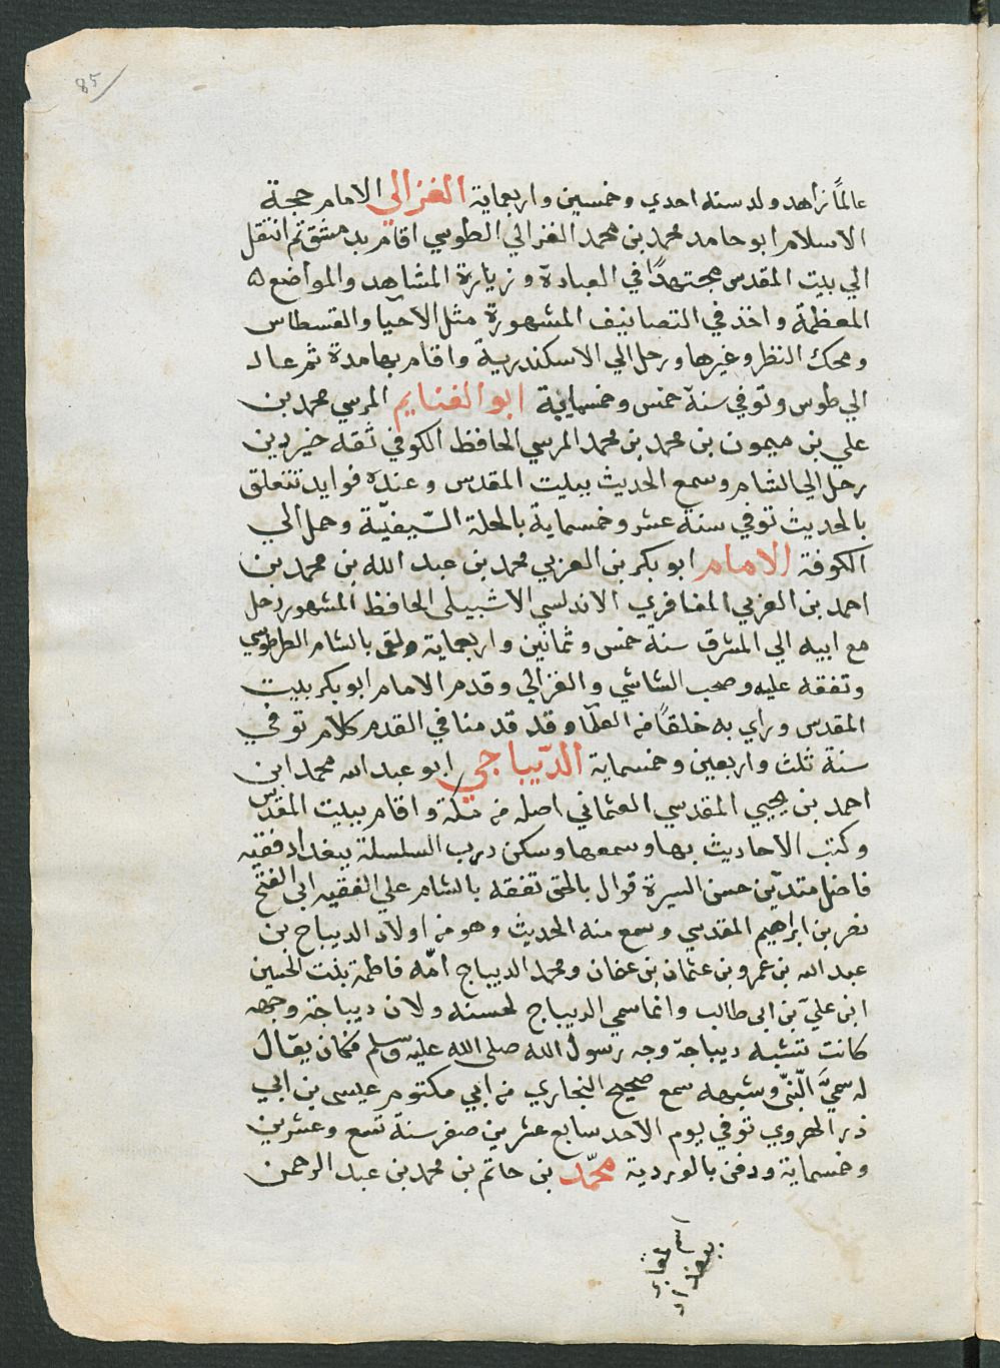 85
عالمًا زاهد ولد سنه احدي وخمسين واربعماية الغزالي الامام حجة
الاسلام ابو حامد محمد بن محمد الغزالي الطوسي اقام بدمشق ثم انتقل
الي بيت المقدس مجتهدًا في العبادة وزيارة المشاهد والمواضع
المعظمة واخذ في التصانيف المشهورة مثل الاحيا والقسطاس
ومحك النظر وغيرها ورحل الي الاسكندرية واقام بها مدة ثم عاد
الي طوس وتوفي سنة خمس وخمسماية ابو الغنايم المرسي محمد بن
علي بن ميمون بن محمد بن محمد المرسي الحافظ الكوفي ثقه خير دين
رحل الي الشام وسمع الحديث ببيت المقدس وعنده فوايد تتعلق
بالحديث توفي سنة عشر وخمسماية بالحلة السّيفيّة وحمل الي
الكوفة الامام ابو بكر بن العربي محمد بن عبد الله بن محمد بن
احمد بن العربي المغافري الاندلسي الاشبيلي الحافظ المشهور رحل
مع ابيه الي المشرق سنة خمس وثمانين واربعماية ولقى بالشام الطرطوسي
وتفقه عليه وصحب الشاشي والغزالي وقدم الامام ابو بكر ببيت
المقدس وراي به خلقًا من العلمآ وقد قدمنا في القدم كلام توفي
سنة ثلث واربعين وخمسماية الدّيباجي ابو عبد الله محمد ابن
احمد بن يحيي المقدسي العثماني اصله من مكة واقام ببيت المقدس
وكتب الاحاديث بها وسمعها وسكن درب السلسلة ببغداد فقيه
فاضل متديّن حسن السيرة قوال بالحق تفقه بالشام علي الفقيه ابي الفتح
نصر بن ابراهيم المقدسي وسمع منه الحديث وهو من اولاد الديباج بن
عبد الله بن عمرو بن عثمان بن عفان ومحمد الديباج امّه فاطمة بنت الحسين
ابن عليّ بن ابي طالب وانما سمي الديباج لحسنه ولان ديباجة وجهه
كانت تشبه ديباجة وجه رسول الله صلى الله عليه وسلم فكان يقال
له سميّ النّبيّ وشبهه سمع صحيح البخاري من ابي مكتوم عيسى بن ابي
ذر الهروي توفي يوم الاحد سابع عشرين صفر سنة تسع وعشرين
وخمسماية ودفن بالوردية محمّد بن حاتم بن محمد بن عبد الرحمن
اسم لمقابر
ببغداد